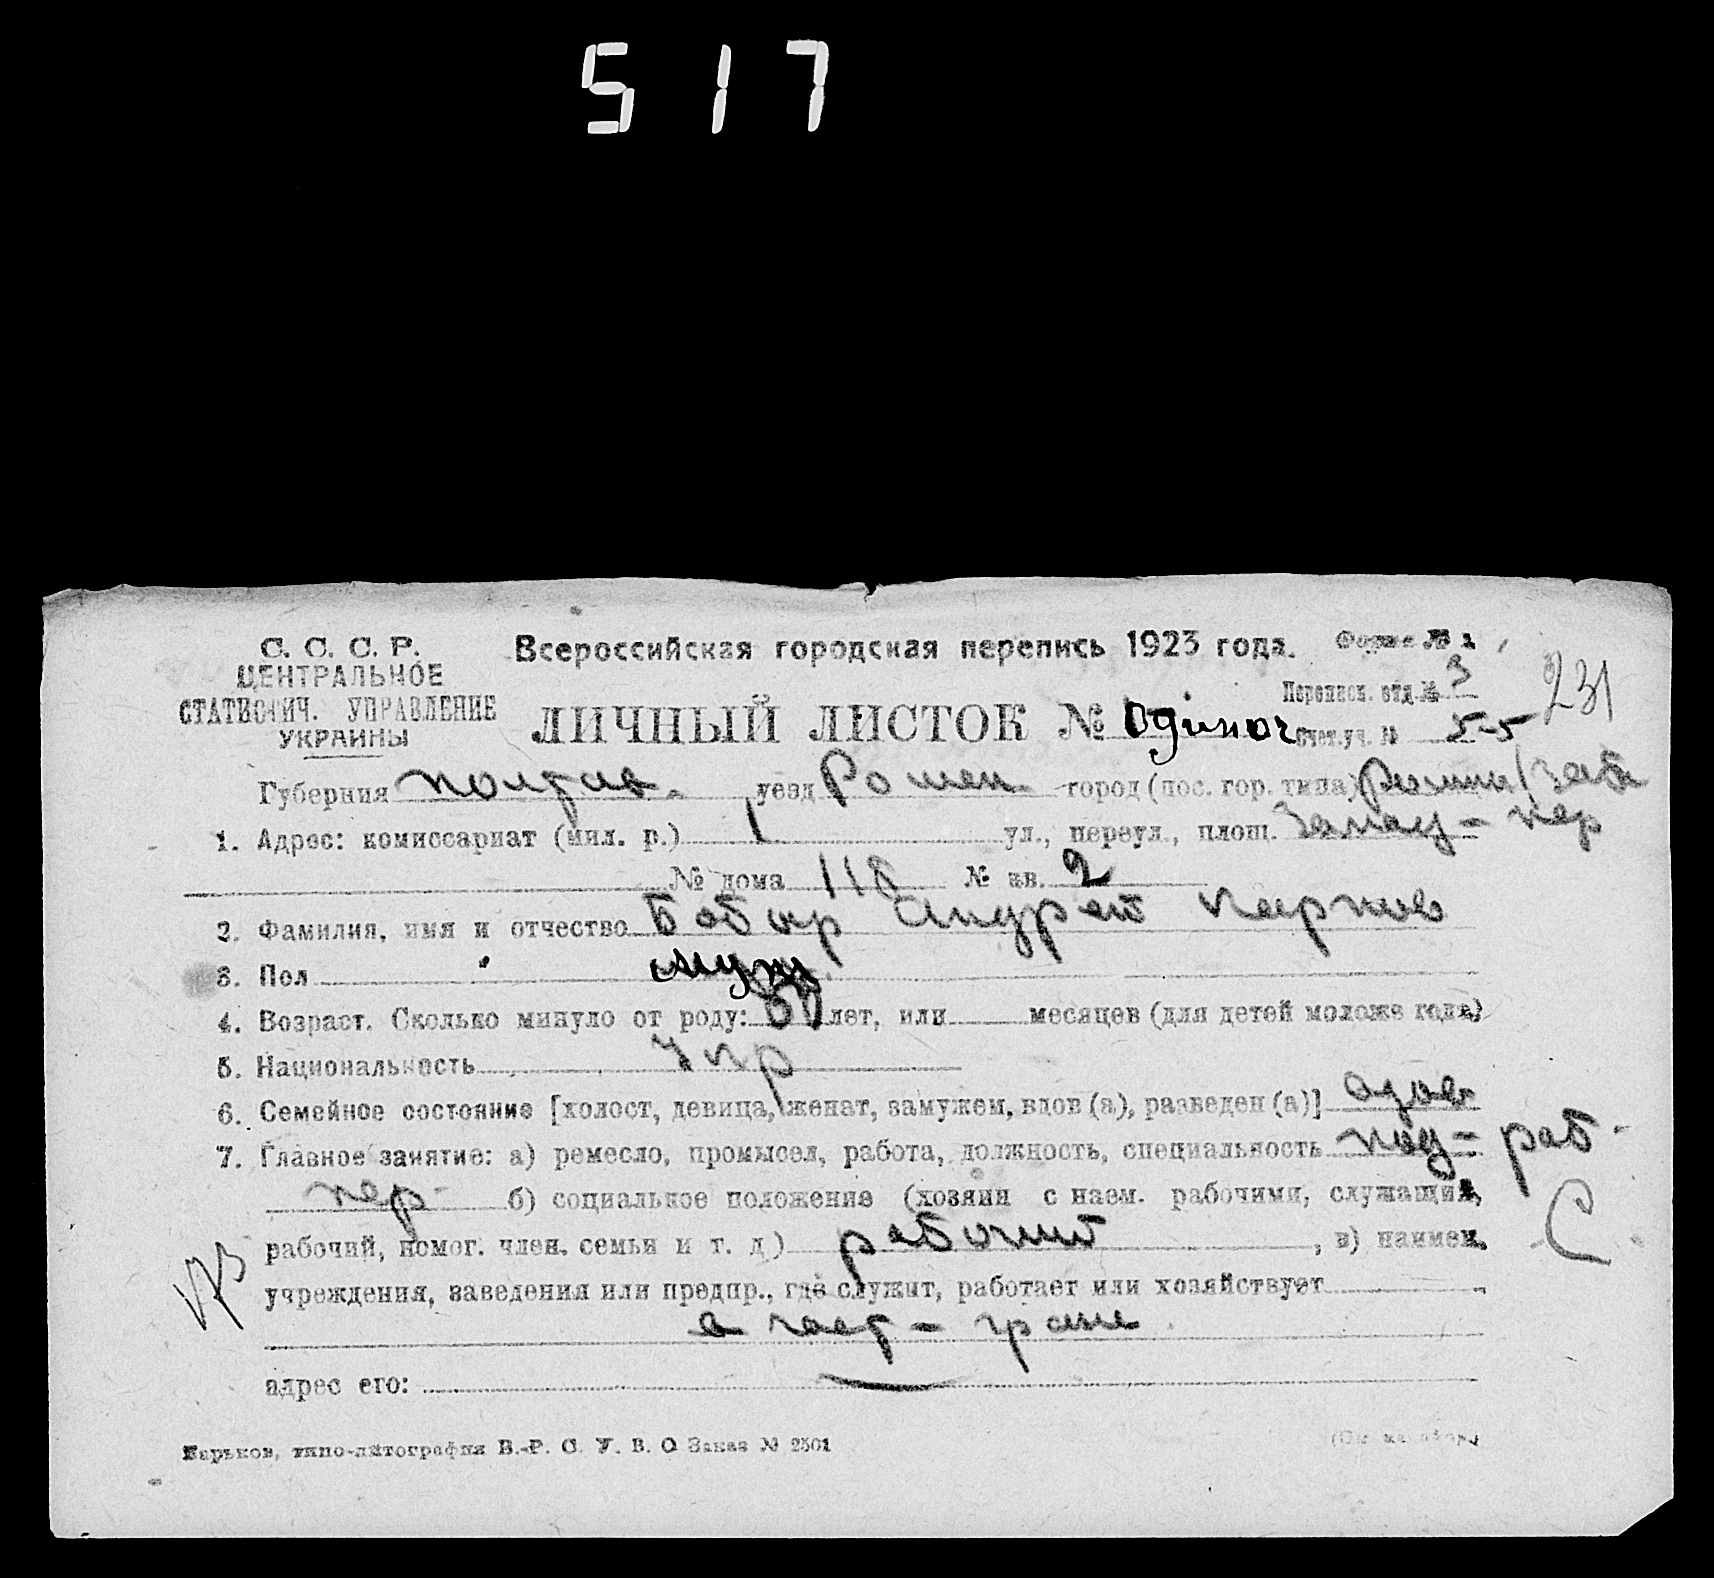 517
С. С. С. Р.
ЦЕНТРАЛЬНОЕ
СТАТИСТИЧ. УПРАВЛЕНИЕ
УКРАИНЫ
Всероссийская городская перепись 1923 года.
Форма № 1
Переписн. отд. № 3
231
ЛИЧНЫЙ ЛИСТОК № Одиноч
Счет. уч. № 55
Губерния Полтав. уезд Ромен. город (пос. гор. типа) Ромны
1. Адрес: комиссариат (мил. р.) 1 ул., переул., площ. Запад - пер
№ дома 118 № кв. 2
2. Фамилия, имя и отчество Бобыр Андрей Карпов
3. Пол муж
4. Возраст. Сколько минуло от роду: лет, или месяцев (для детей моложе года)
5. Национальность Укр
6. Семейное состояние [холост, девица, женат, замужем, вдов (а), разведен (а)] вдов
7. Главное занятие: а) ремесло, промысел, работа, должность, специальность под - раб -
пер б) социальное положение (хозяин с наем. рабочими, служащий,
рабочий, помог. член. семьи и т. д.) рабочий, в) наимен.
С
учреждения, заведения или предпр., где служит, работает или хозяйствует
адрес его:
Харьков, типо-литография В.-Р. С. У. В. О. Заказ № 2501